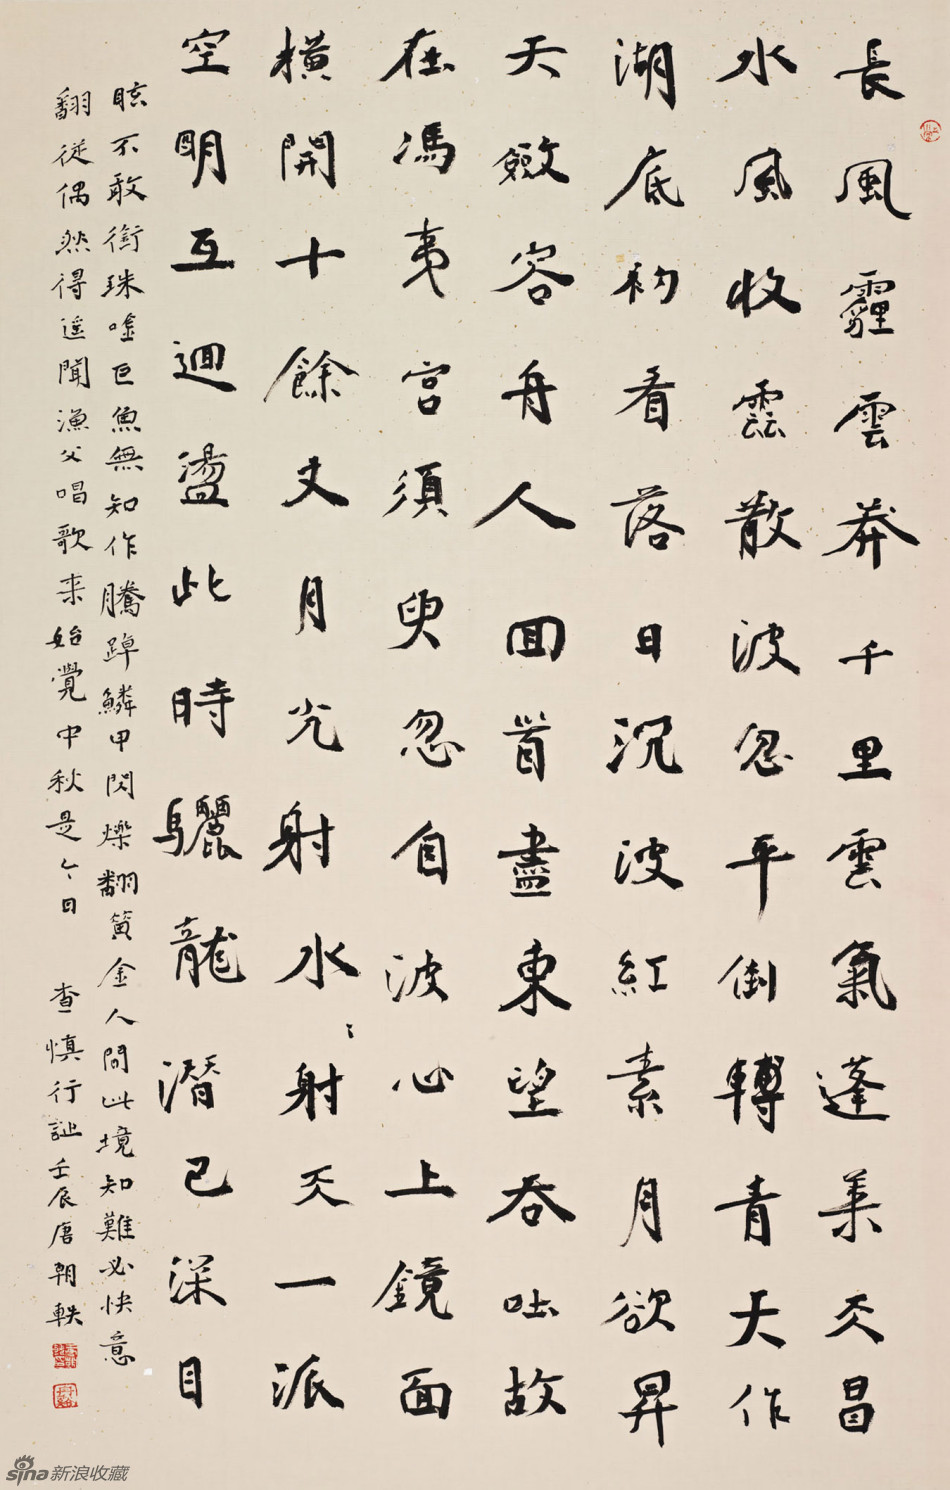 長風霾雲莽千里雲氣蓬莱天昌
水風收雲散波忽平倒轉青天作
湖底初看落日沉波紅素月欲昇
天斂容舟人回首盡東望吞吐故
在馮夷宮須臾忽自波心上鏡面
橫開十餘丈月光射水〻射天一派
空明互迴盪此時驪龍潛已深目
眩不敢銜珠噓巨魚無知作騰踔鱗甲閃爍翻簧金人間此境知難必快意
翻從偶然得遥聞漁父唱歌来始覺中秋是今日 查慎行詩壬辰唐朝軼
sina新浪收藏